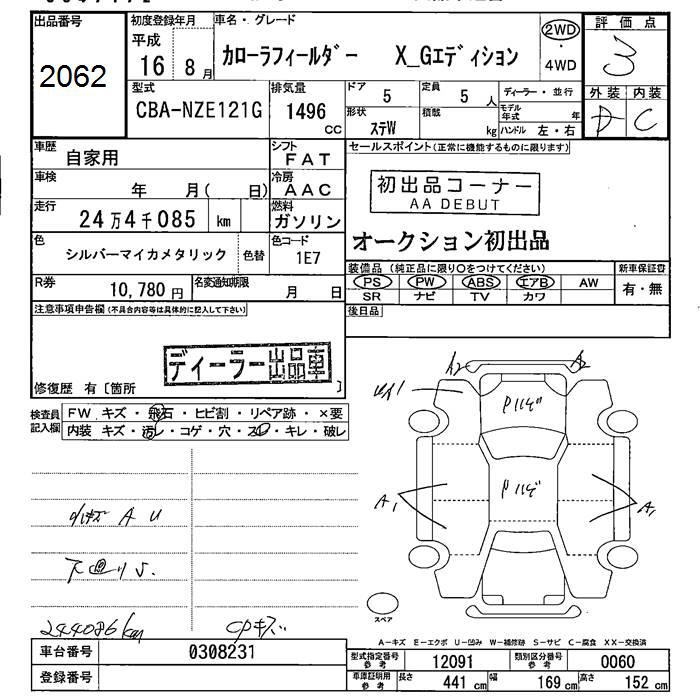 出品番号
2062
初度登録年月
平成
16 8月
車名・グレード
カローラフィールダー X_Gエディション
2WD
・
4WD
評価点
3
型式
CBA-NZE121G
排気量
1496 cc
ドア 5
定員 5 人
ディーラー・並行
形状 ステW
積載 kg
モデル年式 年
ハンドル 左・右
外装 内装
D C
車歴 自家用
シフト FAT
セールスポイント(正常に機能するものに限ります)
車検 年 月( 日)
冷房 AAC
初出品コーナー
AA DEBUT
走行 24万4千085 km
燃料 ガソリン
オークション初出品
色 シルバーマイカメタリック 色替
色コード 1E7
装備品 (純正品に限り○をつけてください)
新車保証書
PS PW ABS エアB AW
有・無
SR ナビ TV カワ
R券 10,780円
名変通知期限 月 日
後日品
注意事項申告欄(不具合内容等は具体的に記入して下さい)
ディーラー出品車
修復歴 有〔箇所 〕
検査員記入欄
FW キズ・飛石・ヒビ割・リペア跡・×要
内装 キズ・汚レ・コゲ・穴・スレ・キレ・破レ
A2 A2
A1 A1
小キズ A U
下回りS.
244086km
CPキズ
スペア
A-キズ E-エクボ U-凹み W-補修跡 S-サビ C-腐食 XX-交換済
車台番号 0308231
型式指定番号 参考 12091
類別区分番号 参考 0060
登録番号
車庫証明用 参考
長さ 441 cm
幅 169 cm
高さ 152 cm